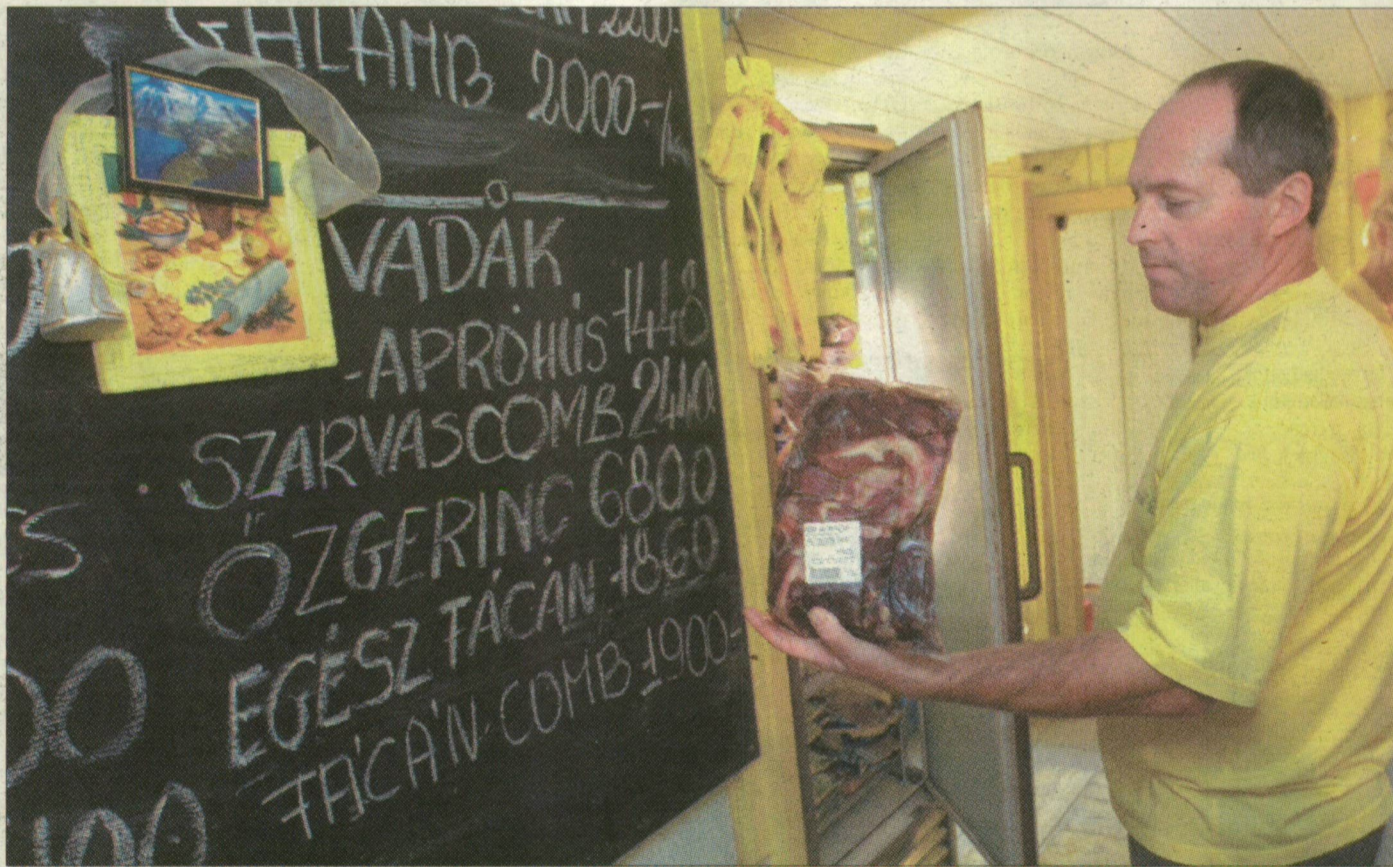 2200-
GALAMB 2000-
VADAK
-APRÓHÚS 1440
SZARVASCOMB 2440-
ŐZGERINC 6800
EGÉSZ FÁCÁN 1860
FÁCÁN-COMB 1900-